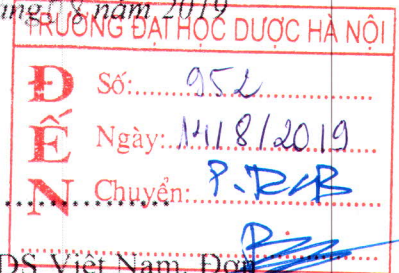 tháng 08 năm 2019
TRƯỜNG ĐẠI HỌC DƯỢC HÀ NỘI
ĐẾN
Số: 952
Ngày: 14/8/2019
Chuyển:
DS Việt Nam, Đơn